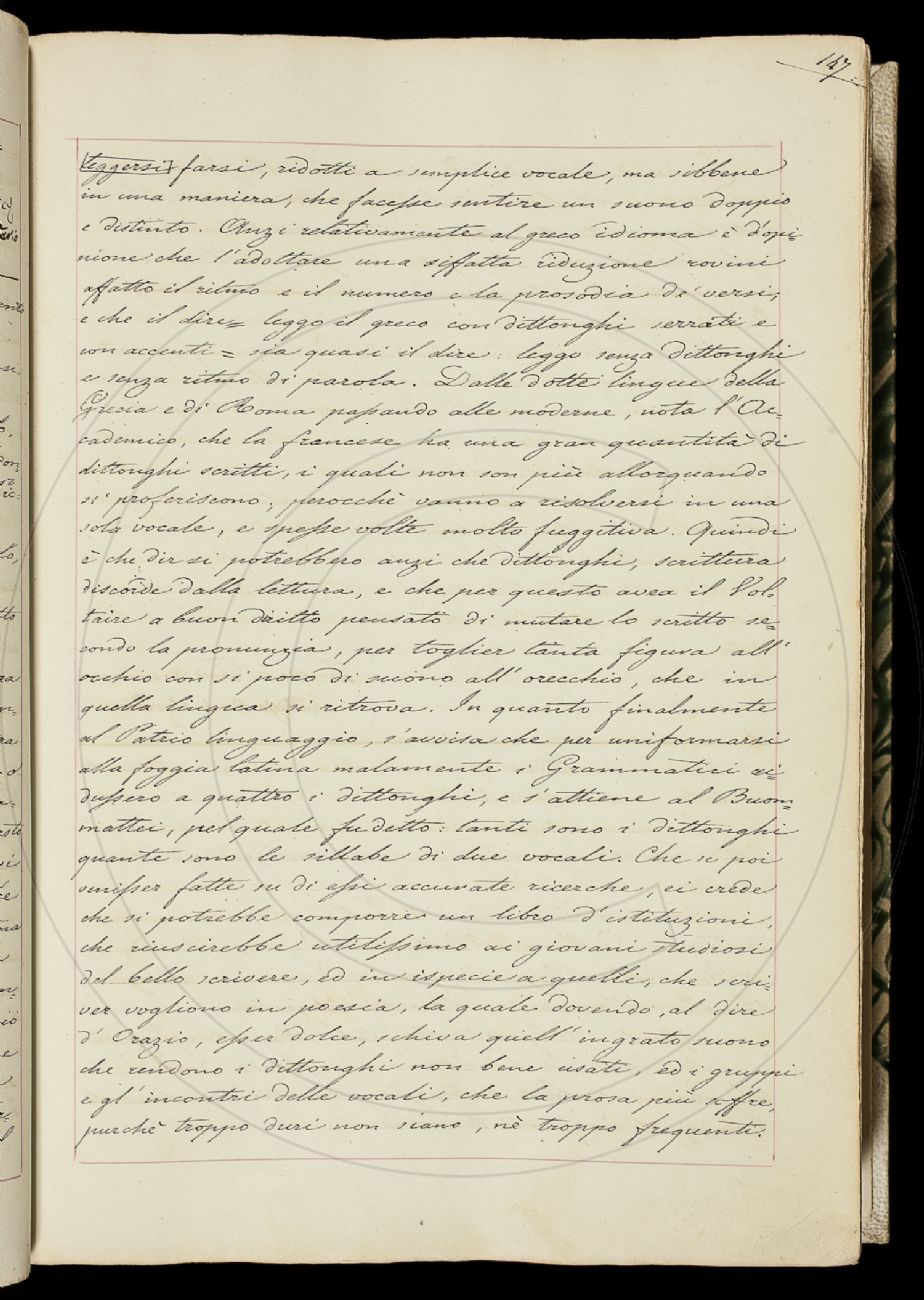 147
leggersi farsi, ridotti a semplice vocale, ma sibbene
in una maniera, che facesse sentire un suono doppio
e distinto. Anzi relativamente al greco idioma è d'opi=
nione che l'adottare una siffatta riduzione rovini
affatto il ritmo e il numero e la prosodia de' versi,
e che il dire= leggo il greco con dittonghi serrati e
con accenti= sia quasi il dire: leggo senza dittonghi
e senza ritmo di parola. Dalle dotte lingue della
Grecia e di Roma passando alle moderne, nota l'Ac=
cademico, che la francese ha una gran quantità di
dittonghi scritti, i quali non son più allorquando
si proferiscono; perocchè vanno a risolversi in una
sola vocale, e spesse volte molto fuggitiva. Quindi
è che dir si potrebbero anzi che dittonghi, scrittura
discorde dalla lettura, e che per questo avea il Vol=
taire a buon diritto pensato di mutare lo scritto se=
condo la pronunzia, per toglier tanta figura all'
occhio con sì poco di suono all'orecchio, che in
quella lingua si ritrova. In quanto finalmente
al Patrio linguaggio, s'avvisa che per uniformarsi
alla foggia latina malamente i Grammatici ri=
dussero a quattro i dittonghi, e s'attiene al Buom=
mattei, pel quale fu detto: tanti sono i dittonghi
quante sono le sillabe di due vocali. Che se poi
venisser fatte su di essi accurate ricerche, ei crede
che si potrebbe comporre un libro d'istituzioni,
che riuscirebbe utilissimo ai giovani studiosi
del bello scrivere, ed in ispecie a quelli, che scri=
ver vogliono in poesia, la quale dovendo, al dire
d'Orazio, esser dolce, schiva quell'ingrato suono
che rendono i dittonghi non bene usati, ed i gruppi
e gl'incontri delle vocali, che la prosa più soffre,
purchè troppo duri non siano, nè troppo frequenti.